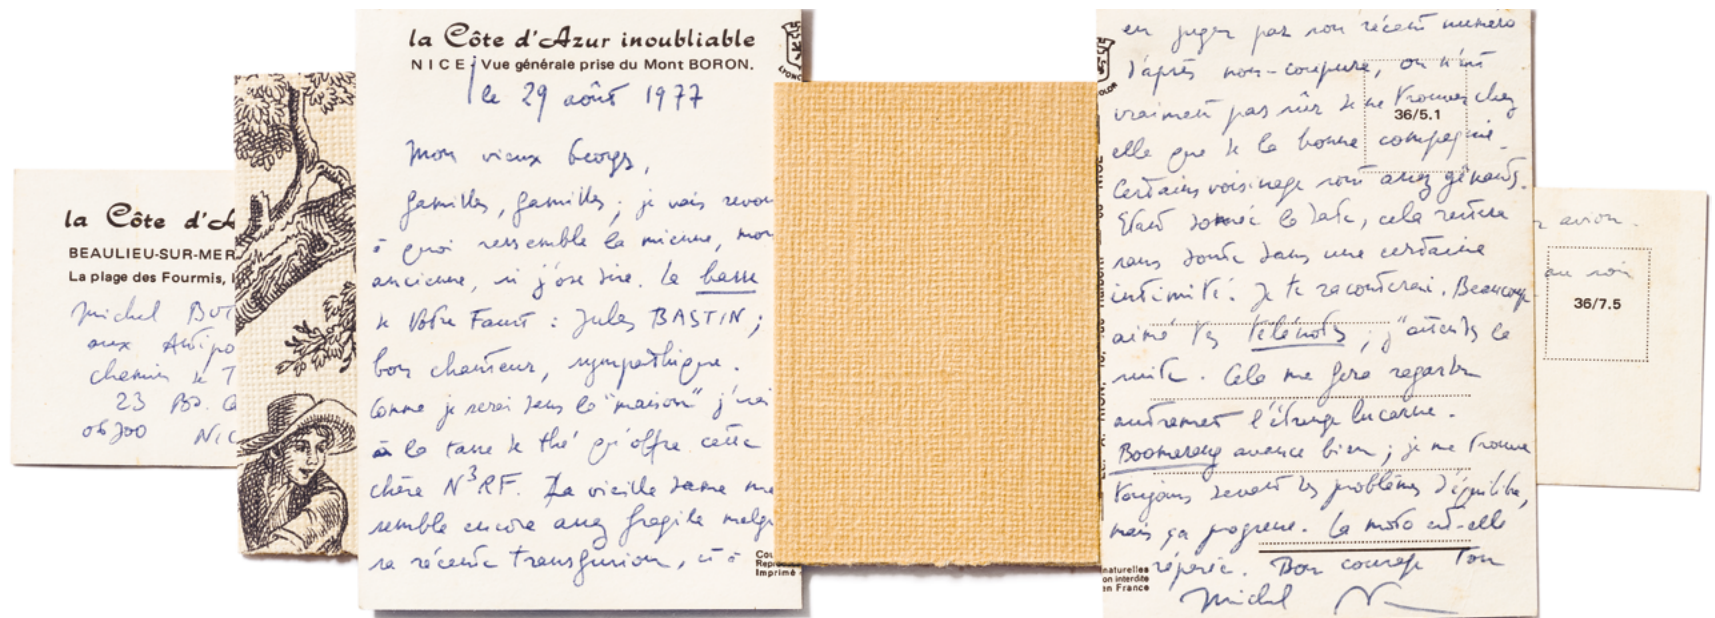 la Côte d'A
BEAULIEU-SUR-MER
La plage des Fourmis,
Michel BUT
aux Antipo
chemin de T
23 Bd. C
06300 NIC
la Côte d'Azur inoubliable
NICE, Vue générale prise du Mont BORON.
le 29 août 1977
Mon vieux Georges,
familles, familles ; je vais revoir
à quoi ressemble la mienne, mon
ancienne, si j'ose dire. La basse
de Votre Faust : Jules BASTIN ;
bon chanteur, sympathique.
Comme je serai dans la "maison" j'irai
à la tasse de thé qu'offre cette
chère N³RF. La vieille dame me
semble encore assez fragile malgr
sa récente transfusion, et à
Cou
Repro
Imprimé
LYONC
en juger par son récent numéro
d'après non-coupure, on n'est
vraiment pas sûr de ne trouver chez
elle que de la bonne compagnie.
Certains voisinages sont assez gênants.
Etant donnée la date, cela restera
sans doute dans une certaine
intimité. Je te raconterai. Beaucoup
aimé tes télénotes ; j'attends la
suite. Cela me fera regarder
autrement l'étrange lucarne.
Boomerang avance bien ; je me trouve
toujours devant des problèmes d'équilibre,
mais ça progresse. La moto est-elle
réparée. Bon courage Ton
Michel
36/5.1
naturelles
on interdite
en France
avion.
au soir
36/7.5